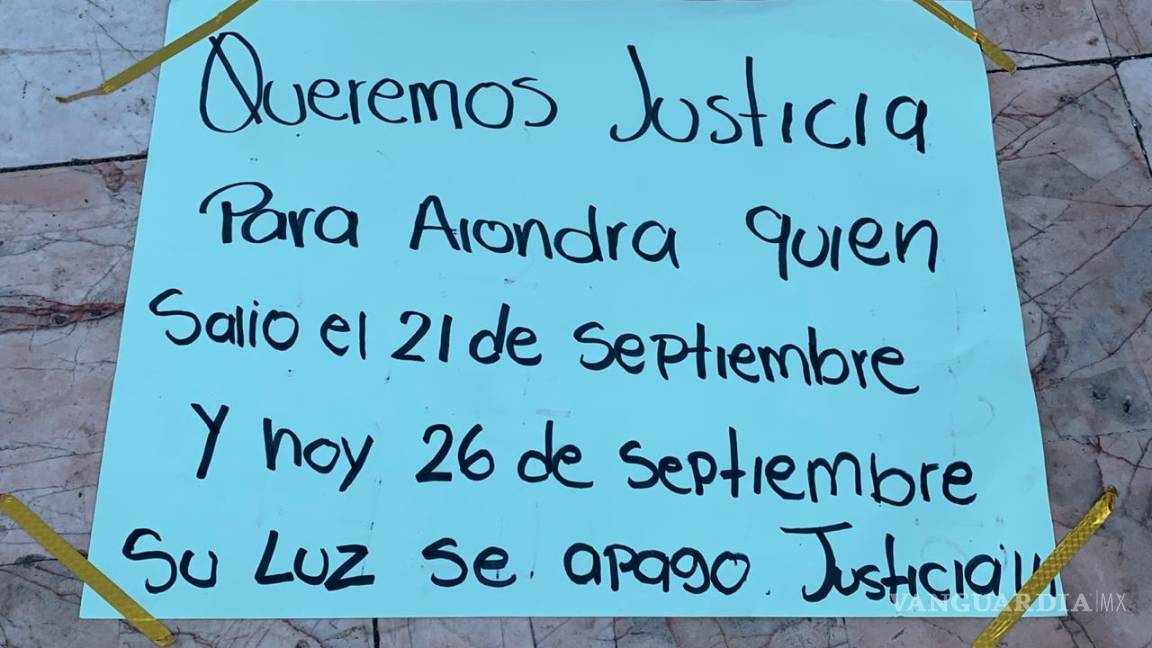 Queremos Justicia
Para Alondra quien
Salio el 21 de Septiembre
Y hoy 26 de Septiembre
Su Luz se apago. Justicia!!!
VANGUARDIA|MX